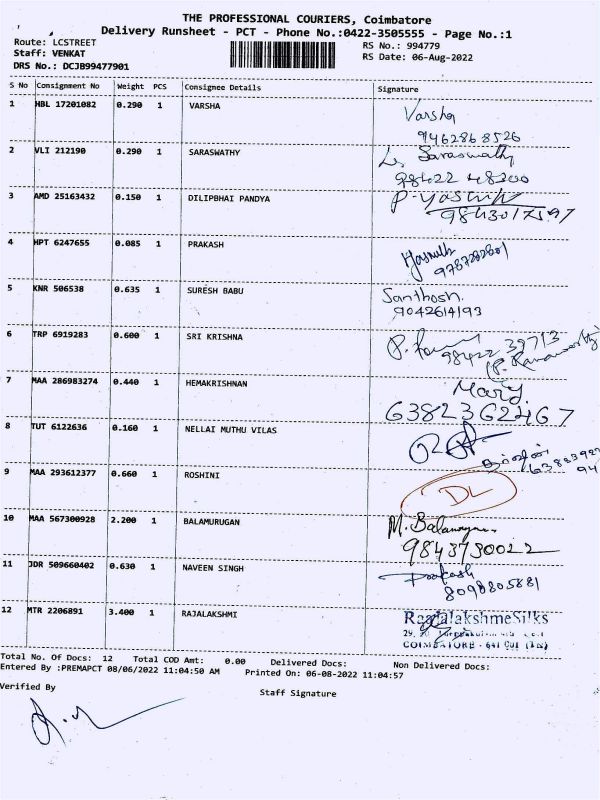 THE PROFESSIONAL COURIERS, Coimbatore
Delivery Runsheet - PCT - Phone No.:0422-3505555 - Page No.:1
Route: LCSTREET
RS No.: 994779
Staff: VENKAT
RS Date: 06-Aug-2022
DRS No.: DCJB99477901
S No Consignment No Weight PCS Consignee Details Signature
1 HBL 17201082 0.290 1 VARSHA Varsha
9462868526
2 VLI 212190 0.290 1 SARASWATHY Saraswathy
98422 48200
3 AMD 25163432 0.150 1 DILIPBHAI PANDYA
9843017597
4 HPT 6247655 0.085 1 PRAKASH
5 KNR 506538 0.635 1 SURESH BABU Santhosh.
9042614193
6 TRP 6919283 0.600 1 SRI KRISHNA
98422 39713
7 MAA 286983274 0.440 1 HEMAKRISHNAN Mary.
6382362467
8 TUT 6122636 0.160 1 NELLAI MUTHU VILAS
9 MAA 293612377 0.660 1 ROSHINI DL
10 MAA 567300928 2.200 1 BALAMURUGAN M. Balamurugan
9843730022
11 JDR 509660402 0.630 1 NAVEEN SINGH Prakash
8098805881
12 MTR 2206891 3.400 1 RAJALAKSHMI RaajalakshmeSilks
COIMBATORE - 641 001 (TN)
Total No. Of Docs: 12 Total COD Amt: 0.00 Delivered Docs: Non Delivered Docs:
Entered By :PREMAPCT 08/06/2022 11:04:50 AM Printed On: 06-08-2022 11:04:57
Verified By
Staff Signature